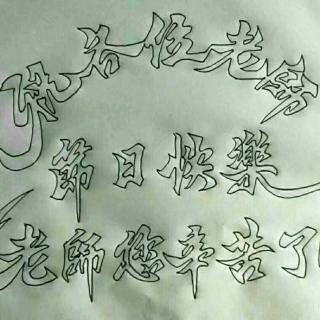 祝各位老師
節日快樂
老師您辛苦了